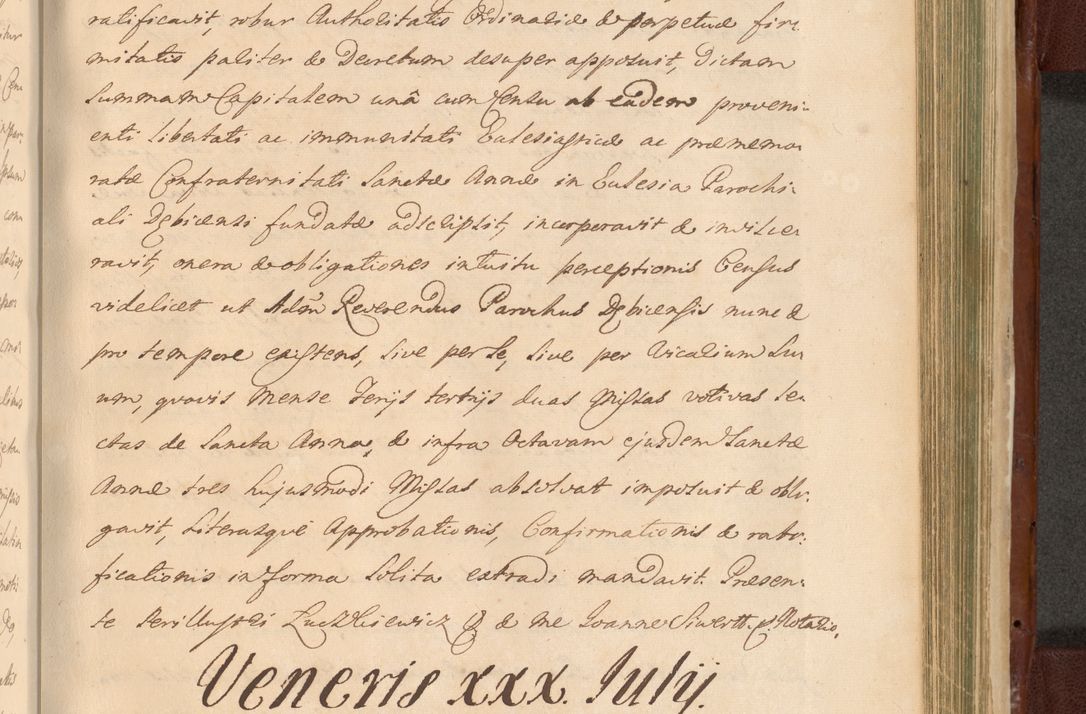 ratificavit, robur Authoritatis Ordinariæ & perpetuæ fir-
mitatis pariter & Decretum desuper apposuit, Dictam
Summam Capitalem unâ cum Censu ab eâdem proveni-
enti Libertati ac immunitati Ecclesiasticæ ac præmemo-
ratæ Confraternitati Sanctæ Annæ in Ecclesia Parochi-
ali Dębicensi fundatæ adscripsit, incorporavit & invisce-
ravit, onera & obligationes intuitu perceptionis Census
videlicet ut Adm Reverendus Parochus Dębicensis nunc &
pro tempore existens, sive per se, sive per Vicarium Su-
um, quovis Mense Ferijs tertijs duas Missas votivas le-
ctas de Sancta Anna, & infra Octavam ejusdem Sanctæ
Annæ tres hujusmodi Missas absolvat imposuit & obli-
gavit, Literasque Approbationis, Confirmationis & rati-
ficationis in forma solita extradi mandavit. Præsen-
te Perillustri Łuczkiewicz & me Joanne Siwertt. p. Notario.
Veneris xxx. Julij.